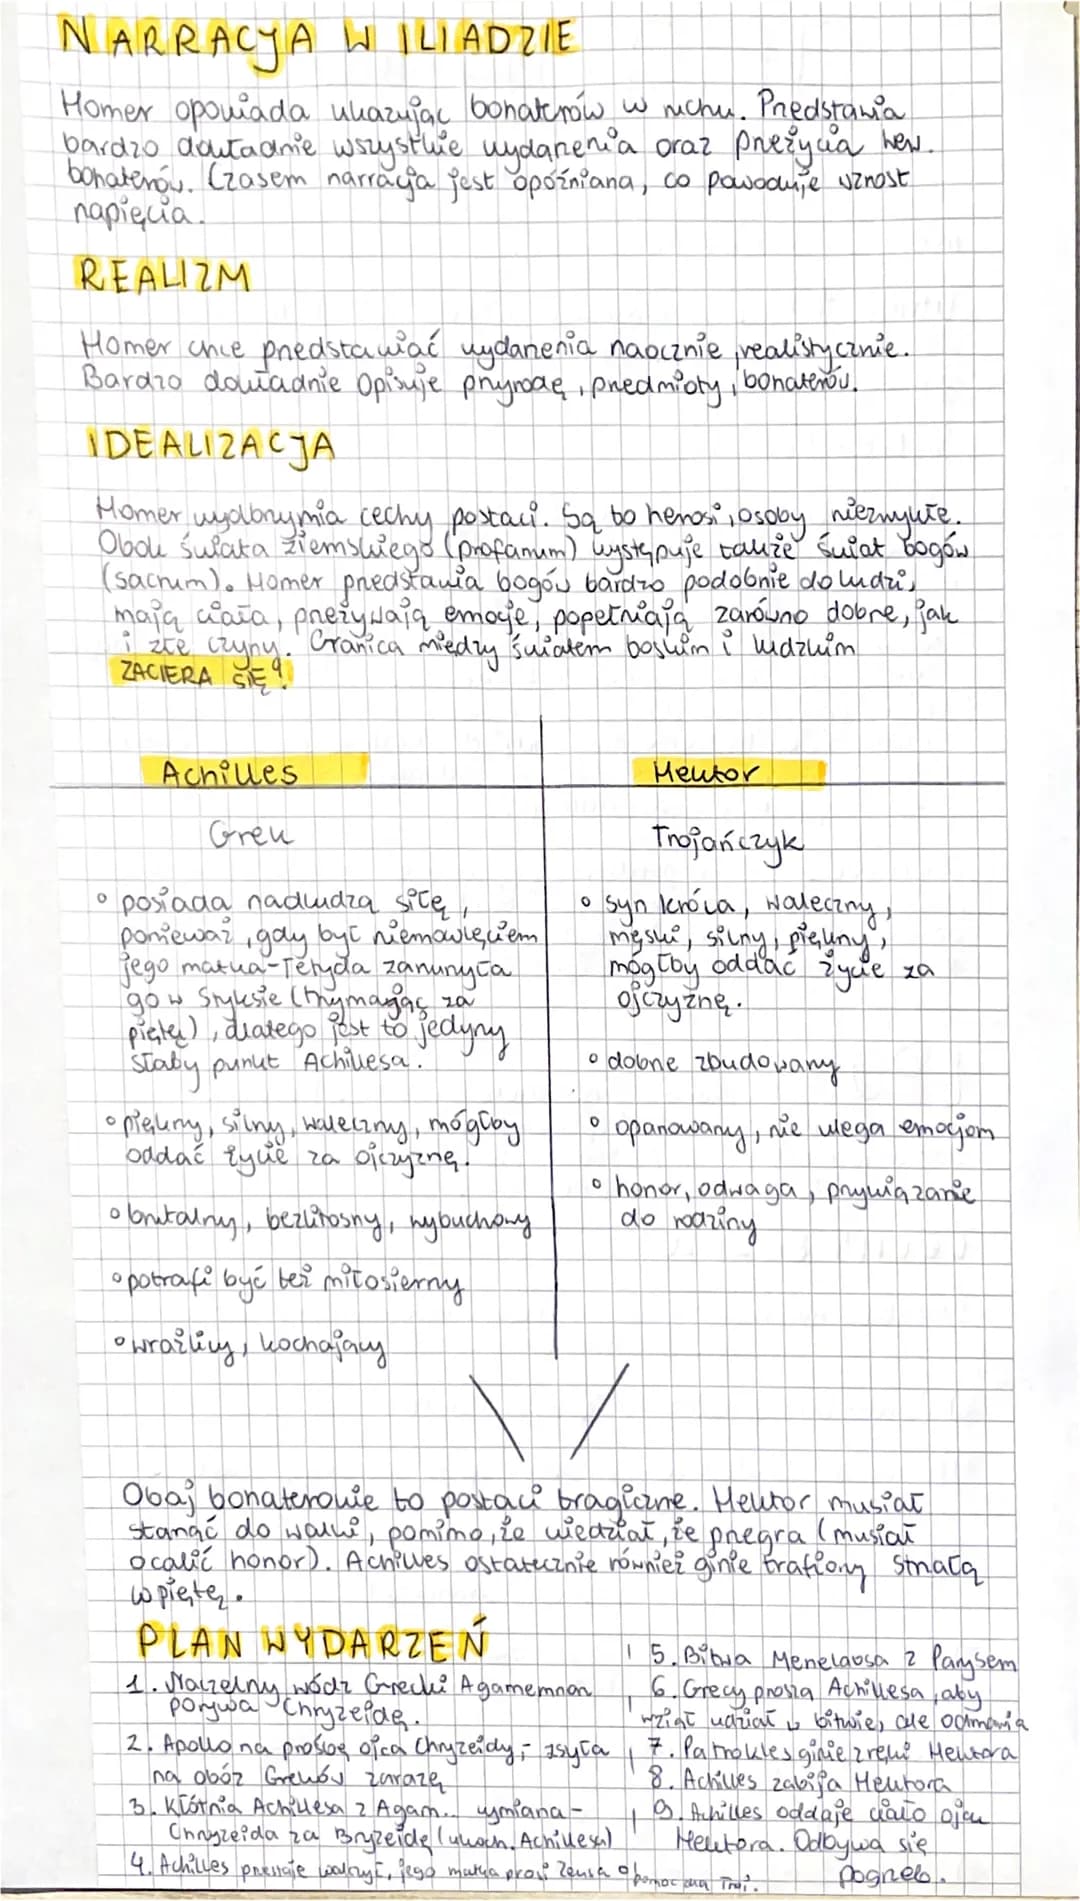 NARRACJA W ILIADZIE
Homer opowiada ukazując bohaterów w ruchu. Przedstawia
bardzo dokładnie wszystkie wydarzenia oraz przeżycia wew.
bohaterów. Czasem narracja jest opóźniana, co powoduje wzrost
napięcia.
REALIZM
Homer chce przedstawiać wydarzenia naocznie, realistycznie.
Bardzo dokładnie opisuje przyrodę, przedmioty, bohaterów.
IDEALIZACJA
Homer wyolbrzymia cechy postaci. Są to herosi, osoby niezwykłe.
Obok świata ziemskiego (profanum) występuje także świat bogów
(sacrum). Homer przedstawia bogów bardzo podobnie do ludzi,
mają ciała, przeżywają emocje, popełniają zarówno dobre, jak
i złe czyny. Granica między światem boskim i ludzkim
ZACIERA SIĘ!
Achilles
Grek
• posiada nadludzą siłę,
ponieważ, gdy był niemowlęciem
jego matka-Tetyda zanurzyła
go w Styksie (trzymając za
piętę), dlatego jest to jedyny
słaby punkt Achillesa.
• piękny, silny, waleczny, mógłby
oddać życie za ojczyznę.
• brutalny, bezlitosny, wybuchowy
• potrafi być też miłosierny
• wrażliwy, kochający
Hektor
Trojańczyk
• syn króla, waleczny,
męski, silny, piękny,
mógłby oddać życie za
ojczyznę.
• dobrze zbudowany
• opanowany, nie ulega emocjom
• honor, odwaga, przywiązanie
do rodziny
Obaj bohaterowie to postaci tragiczne. Hektor musiał
stanąć do walki, pomimo, że wiedział, że przegra (musiał
ocalić honor). Achilles ostatecznie również ginie trafiony strzałą
w piętę.
PLAN WYDARZEŃ
1. Naczelny wódz Grecki Agamemnon
porywa Chryzeidę.
2. Apollo na prośbę ojca Chryzeidy,- zsyła
na obóz Greków zarazę
3. Kłótnia Achillesa z Agam.. wymiana -
Chryzeida za Bryzeidę (ukoch. Achillesa)
4. Achilles przestaje walczyć, jego matka prosi Zeusa o pomoc dla Troi.
5. Bitwa Menelaosa z Parysem
6. Grecy proszą Achillesa, aby
wziął udział w bitwie, ale odmawia
7. Patrokles ginie z ręki Hektora
8. Achilles zabija Hektora
9. Achilles oddaje ciało ojcu
Hektora. Odbywa się
pogrzeb.